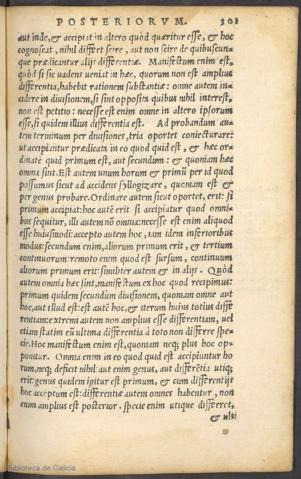 POSTERIORVM. 301
aut inde, & accipiat in altero quod quæritur esse, & hoc
cognoscat, nihil differt scire, aut non scire de quibuscun-
que prædicantur alijs differentiæ. Manifestum enim est,
quòd si sic uadens ueniat in hæc, quorum non est amplius
differentia, habebit rationem substantiæ: omne autem in-
cidere in diuisionem, si sint opposita quibus nihil interest,
non est petitio: necesse est enim omne in altero ipsorum
esse, si quidem illius differentia est. Ad probandum au-
tem terminum per diuisiones, tria oportet coniecturare:
ut accipiantur prædicata in eo quod quid est, & hæc or-
dinatè quid primum est, aut secundum: & quoniam hæc
omnia sint. Est autem unum horum & primũ per id quod
possumus sicut ad accidens syllogizare, quoniam est &
per genus probare. Ordinare autem sicut oportet, erit: si
primum accipiat: hoc autẽ erit si accipiatur quod omni-
bus sequitur, illi autem nõ omnia: necesse est enim aliquod
esse huiusmodi: accepto autem hoc, iam idem inferioribus
modus: secundum enim, aliorum primum erit, & tertium
continuorum: remoto enim quod est sursum, continuum
aliorum primum erit: similiter autem & in alijs. Quòd
autem omnia hæc sint, manifestum ex hoc quod recipimus:
primum quidem secundum diuisionem, quoniam omne aut
hoc, aut illud est: est autẽ hoc, & iterum huius totius diffe
rentiam: extrema autem non amplius esse differentiam, uel
etiam statim cũ ultima differentia à toto non differre spe-
cie. Hoc manifestum enim est, quoniam neq; plus hoc op-
ponitur. Omnia enim in eo quod quid est accipiuntur ho
rum, neq; deficit nihil: aut enim genus, aut differẽtia utiq;
erit: genus quidem igitur est primum, & cum differentijs
hoc acceptum est: differentiæ autem omnes habentur, non
enim amplius est posterior. specie enim utique differret,
Biblioteca de Galicia